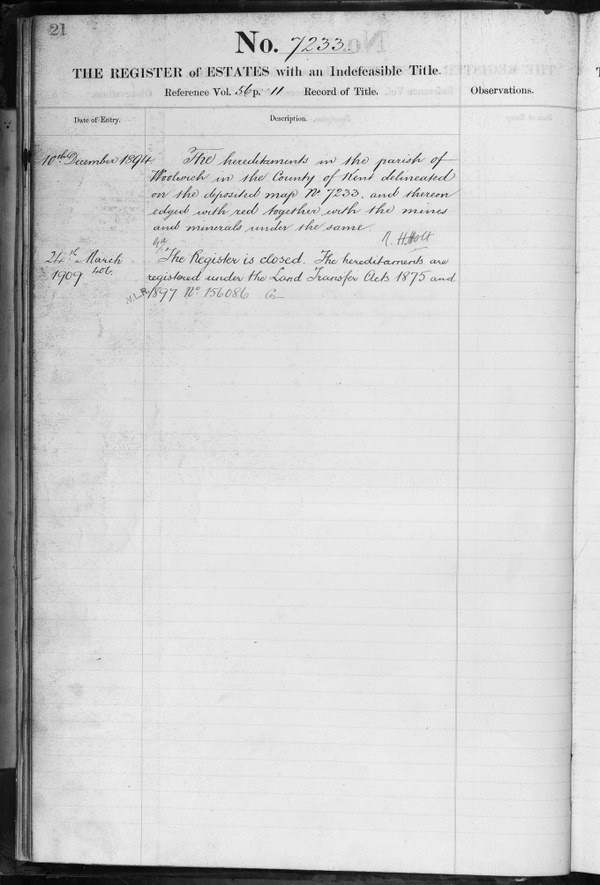 21
No. 7233
THE REGISTER of ESTATES with an Indefeasible Title.
Reference Vol. 56 p. 11 Record of Title.
Observations.
Date of Entry.
Description.
10th December 1894
The hereditaments in the parish of
Woolwich in the County of Kent delineated
on the deposited map No 7233. and thereon
edged with red together with the mines
and minerals under the same.
R. H. Holt
24th March
1909
The Register is closed. The hereditaments are
registered under the Land Transfer Acts 1875 and
1897 No 156086